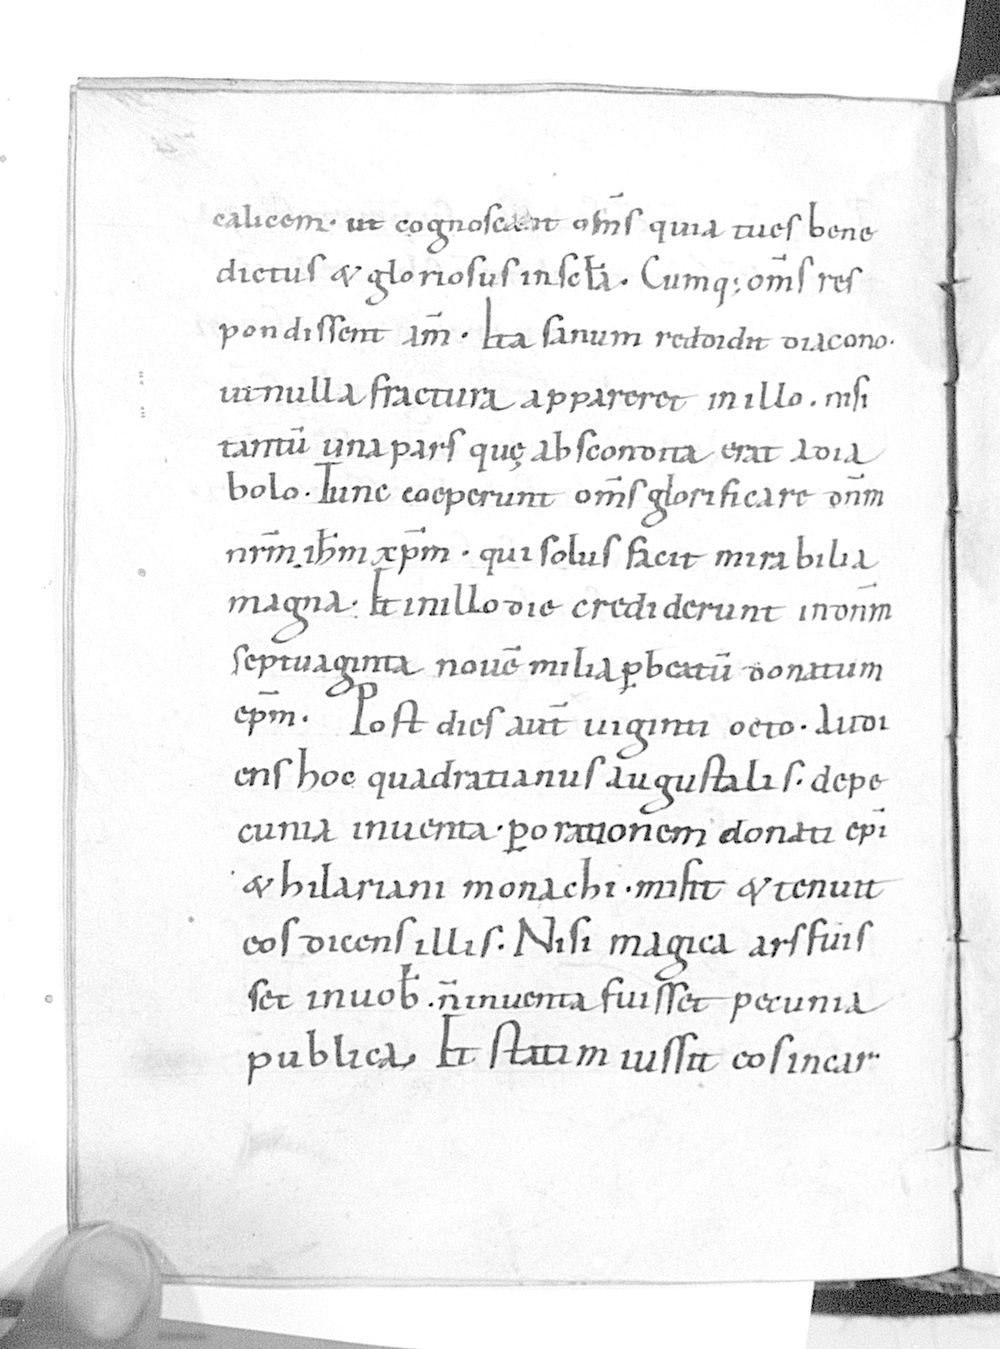 calicem · ut cognoscant om̄s quia tu es bene
dictus & gloriosus in sc̄ła · Cumq; om̄s res
pondissent am̄ · Ita sanum reddidit diacono ·
ut nulla fractura appareret in illo . nisi
tantū una pars quę abscondita erat a dia
bolo · Tunc coeperunt om̄s glorificare dn̄m
nr̄m ih̄m xp̄m · qui solus facit mirabilia
magna · Et in illo die crediderunt in dn̄m
septuaginta nouē milia ꝑ beatū donatum
ep̄m · Post dies aut̄ uiginti octo · Audi
ens hoc quadratianus augustalis · de pe
cunia inuenta · ꝑ orationem donati ep̄i
& hilariani monachi · misit & tenuit
eos dicens illis · Nisi magica ars fuis
set in uob̄ . n̄ inuenta fuisset pecunia
publica, Et statim iussit eos in car